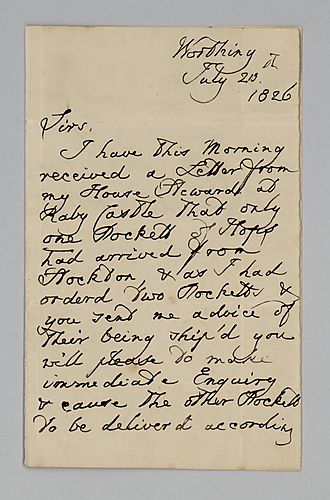 Worthing
July 2d.
1826
Sirs,
I have this Morning
received a Letter from
my House Steward at
Raby Castle that only
one Pockett of Hops
had arrived from
Stockton & as I had
orderd two Pocketts &
you sent me advice of
their being ship'd you
will please to make
immediate Enquiry
& cause the other Pockett
to be deliverd according